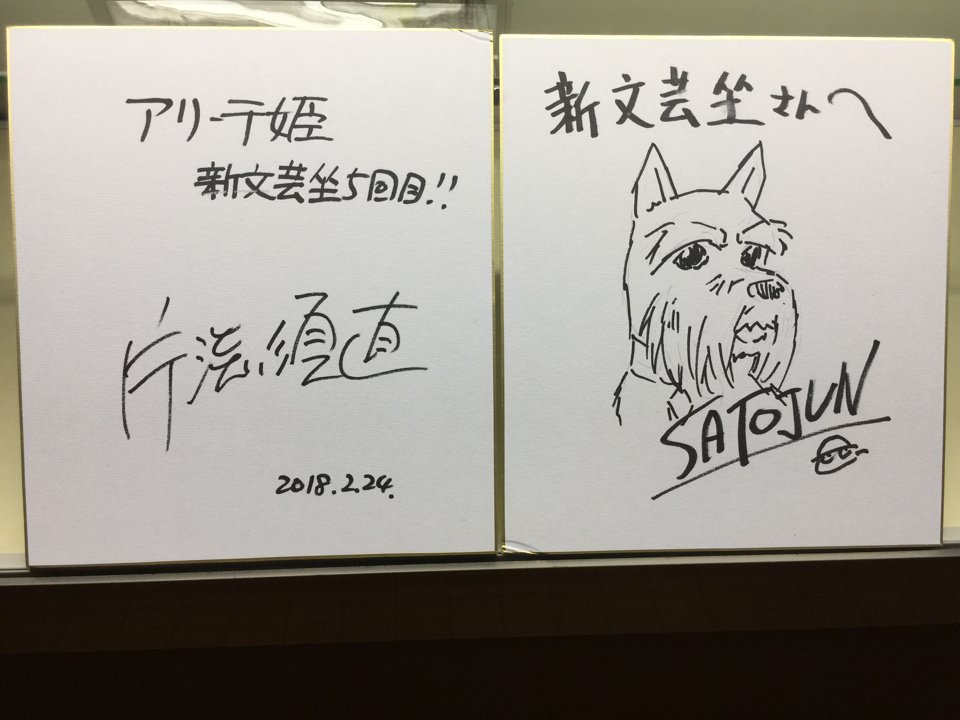 アリーテ姫
新文芸坐5回目!!
片渕須直
2018.2.24.
新文芸坐さんへ
SATOJUN